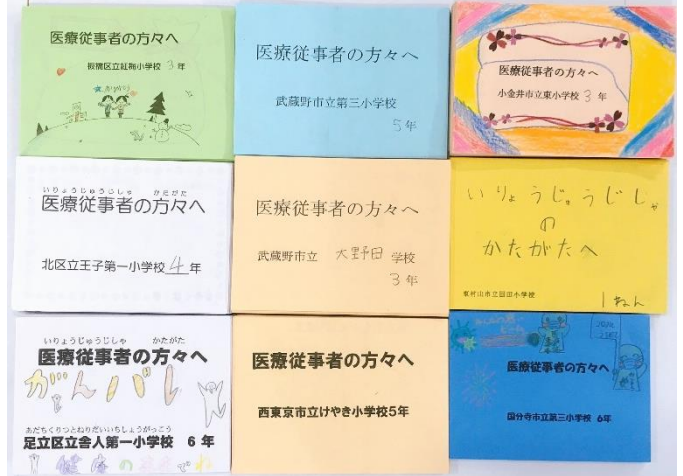 医療従事者の方々へ
板橋区立紅梅小学校 3年
医療従事者の方々へ
武蔵野市立第三小学校
5年
医療従事者の方々へ
小金井市立東小学校 3年
いりょうじゅうじしゃ かたがた
医療従事者の方々へ
北区立王子第一小学校 4年
医療従事者の方々へ
武蔵野市立 大野田 学校
3年
いりょうじゅうじしゃ
の
かたがたへ
東村山市立回田小学校
1ねん
いりょうじゅうじしゃ かたがた
医療従事者の方々へ
がんバレ
あだちくりつとねりだいいちしょうがっこう
足立区立舎人第一小学校 6年
医療従事者の方々へ
西東京市立けやき小学校5年
医療従事者の方々へ
国分寺市立第三小学校 6年